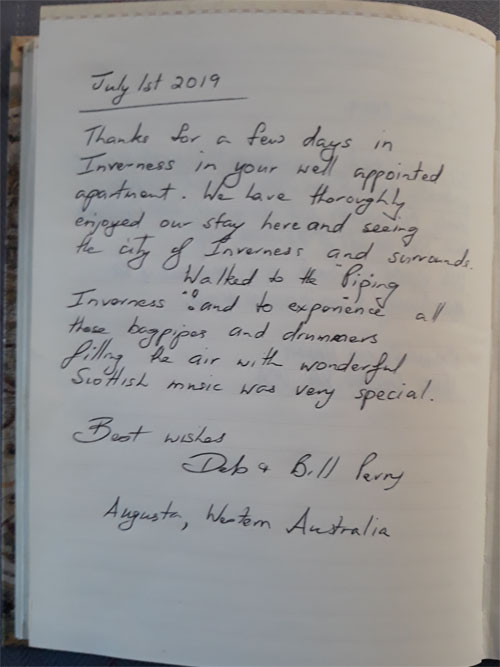 July 1st 2019
Thanks for a few days in
Inverness in your well appointed
apartment. We have thoroughly
enjoyed our stay here and seeing
the city of Inverness and surrounds.
Walked to the "Piping
Inverness" and to experience all
those bagpipes and drummers
filling the air with wonderful
Scottish music was very special.
Best wishes
Deb & Bill Perry
Augusta, Western Australia